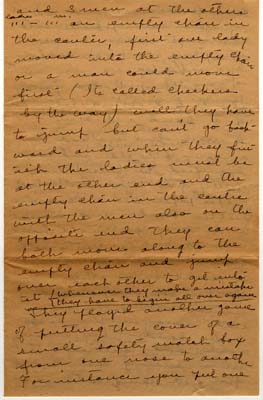 and 3 men at the other
ladies ''' – ''' men an empty chair in
the center, first one lady
moved into the empty chair
or a man could move
first (Its called checkers
by the way) well they have
to jump but can't go back-
ward and when they fin-
ish the ladies must be
at the other end and the
empty chair in the centre
with the men also on the
opposite end They can
both move along to the
empty chair and jump
over each other to get into
it (whenever they make a mistake
they have to begin all over again
They played another game
of putting the cover of a
small safety match box
from one nose to another
For instance you put one